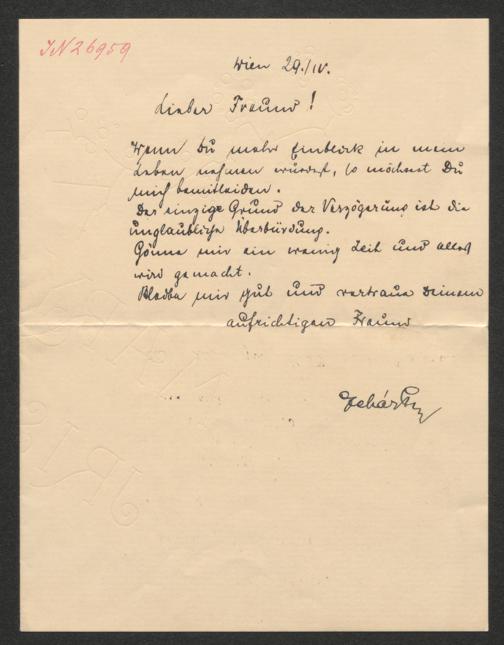 IN 26959
Wien 29./IV.
Lieber Freund!
Wenn Du mehr Einblick in mein
Leben nehmen würdest, so möchtest Du
mich bemitleiden.
Der einzige Grund der Verzögerung ist die
unglaubliche Überbürdung.
Gönne mir ein wenig Zeit und alles
wird gemacht.
Bleibe mir gut und vertraue Deinem
aufrichtigen Freund